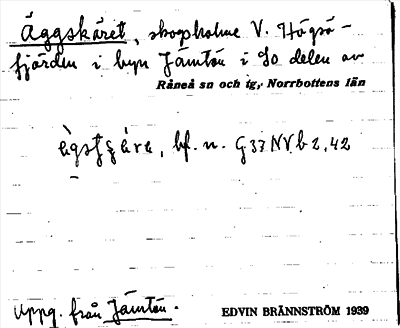 Äggskäret, skogsholme V. Högsö-
fjärden i byn Jämtön i SO delen av
Råneå sn och tg, Norrbottens län
bf. n. G33NVb2,42
Uppg. från Jämtön.
EDVIN BRÄNNSTRÖM 1939